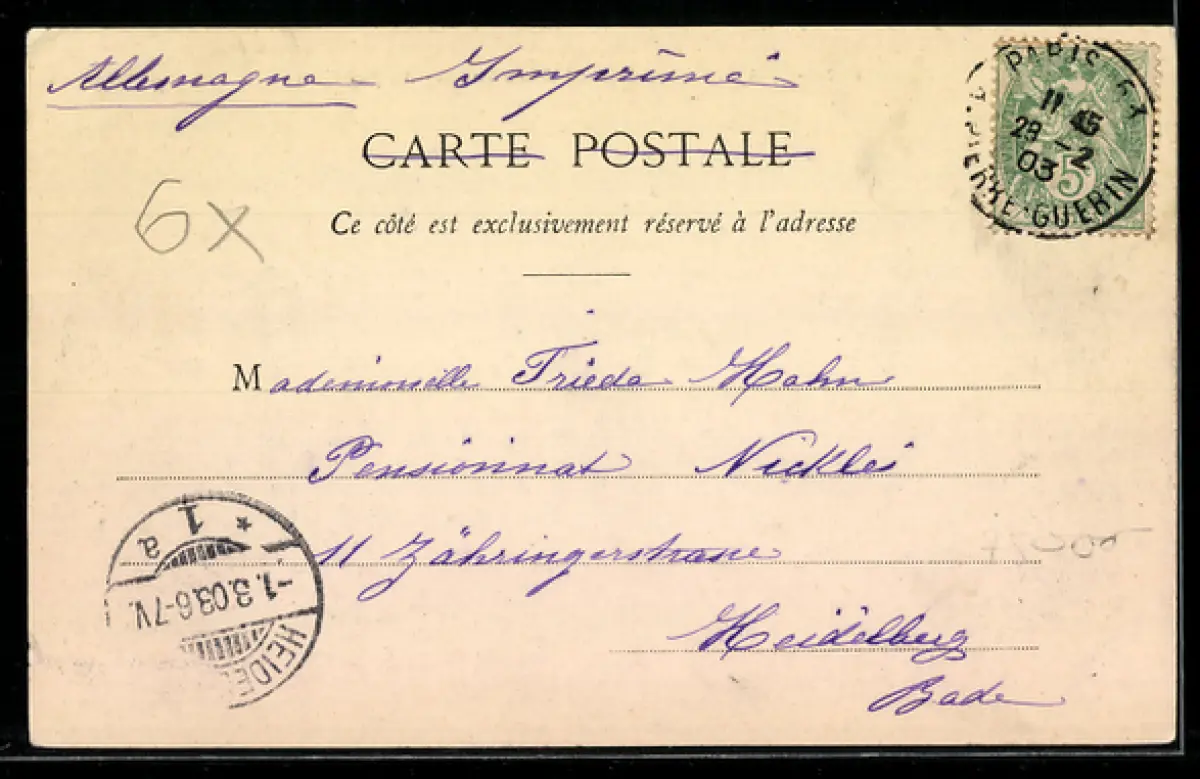 Allemagne Imprimé
CARTE POSTALE
Ce côté est exclusivement réservé à l'adresse
6x
PARIS
11 45
28 -2
03
PIERRE-GUERIN
5
Mademoiselle Frieda Hahn
Pensionnat Nicklés
11 Zähringerstrasse
Heidelberg
Bade
* 1 a
-1.3.03.6-7V.
HEIDE